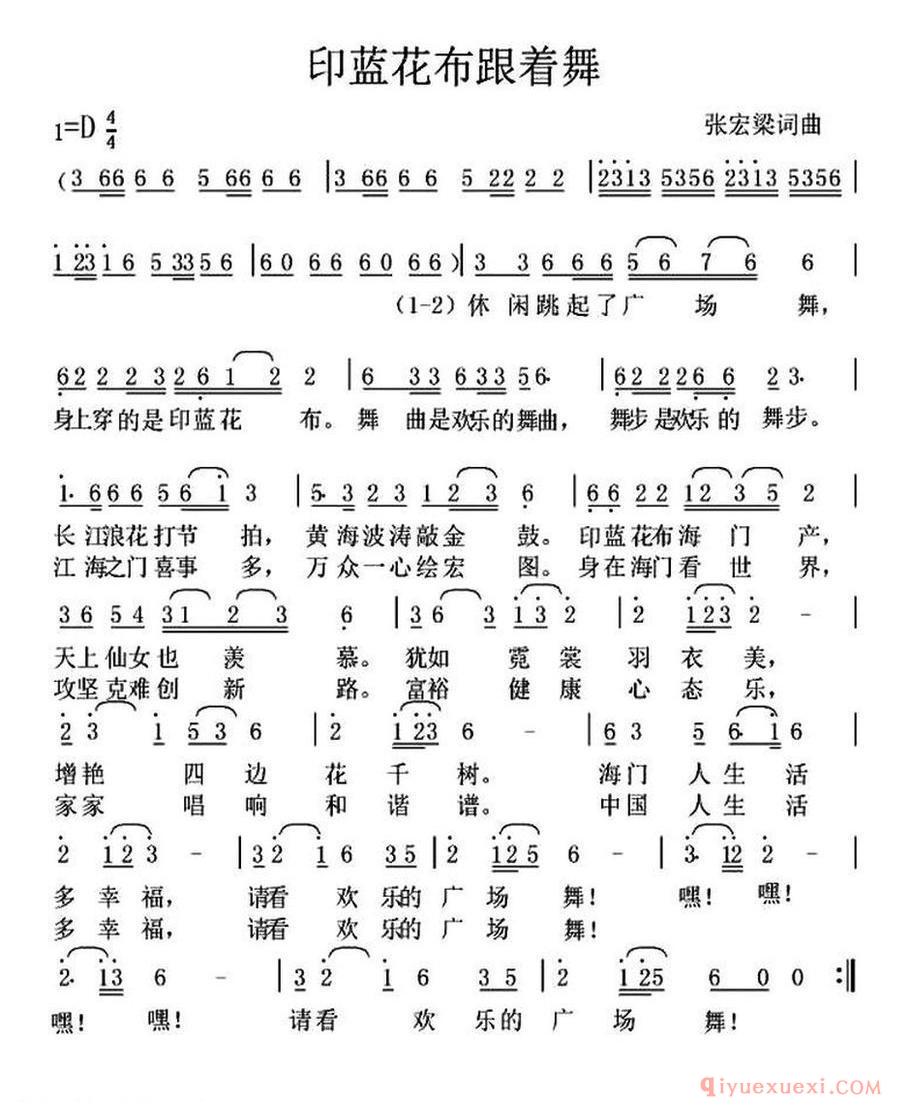 印蓝花布跟着舞
1=D 4/4 张宏梁词曲
(3 66 6 6 5 66 6 6 | 3 66 6 6 5 22 2 2 | 2313 5356 2313 5356 |
1 23 1 6 5 33 5 6 | 6 0 6 6 6 0 6 6 ) | 3 3 6 6 6 5 6 7 6 6 |
(1-2)休 闲跳起了广 场 舞,
6 2 2 2 3 2 6 1 2 2 | 6 3 3 6 3 3 5 6· 6 2 2 2 6 6 2 3· |
身上穿的是印蓝花 布。舞 曲是欢乐的舞曲, 舞步是欢乐的 舞步。
1· 6 6 6 5 5 6 1 3 | 5· 3 2 3 1 2 2 3 6 | 6 6 2 2 1 2 3 5 2 |
长江浪花打节 拍, 黄海波涛敲金 鼓。 印蓝花布海 门 产,
江海之门喜事 多, 万众一心绘宏 图。身在海门看 世 界,
3 6 5 4 3 1 2 3 6 | 3 6 3 1· 3 2 | 2 1 2 3 2 - |
天上仙女也 羡 慕。 犹如 霓 裳 羽 衣 美,
攻坚克难创 新 路。 富裕 健 康 心 态 乐,
2 3 1 5 3 6 | 2 1 2 3 6 - | 6 3 5 6· 1 6 |
增艳 四 边 花 千 树。 海门 人 生 活
家家 唱 响 和 谐 谱。 中国 人 生 活
2 1 2 3 - | 3 2 1 6 3 5 | 2 1 2 5 6 - | 3· 1 2 2 - |
多 幸 福, 请看 欢 乐的 广 场 舞! 嘿! 嘿!
多 幸 福, 请看 欢 乐的 广 场 舞!
2· 1 3 6 - | 3 2 1 6 3 5 | 2 1 2 5 6 0 0 :||
嘿! 嘿! 请看 欢 乐的 广 场 舞!
qiyuexuexi.COM